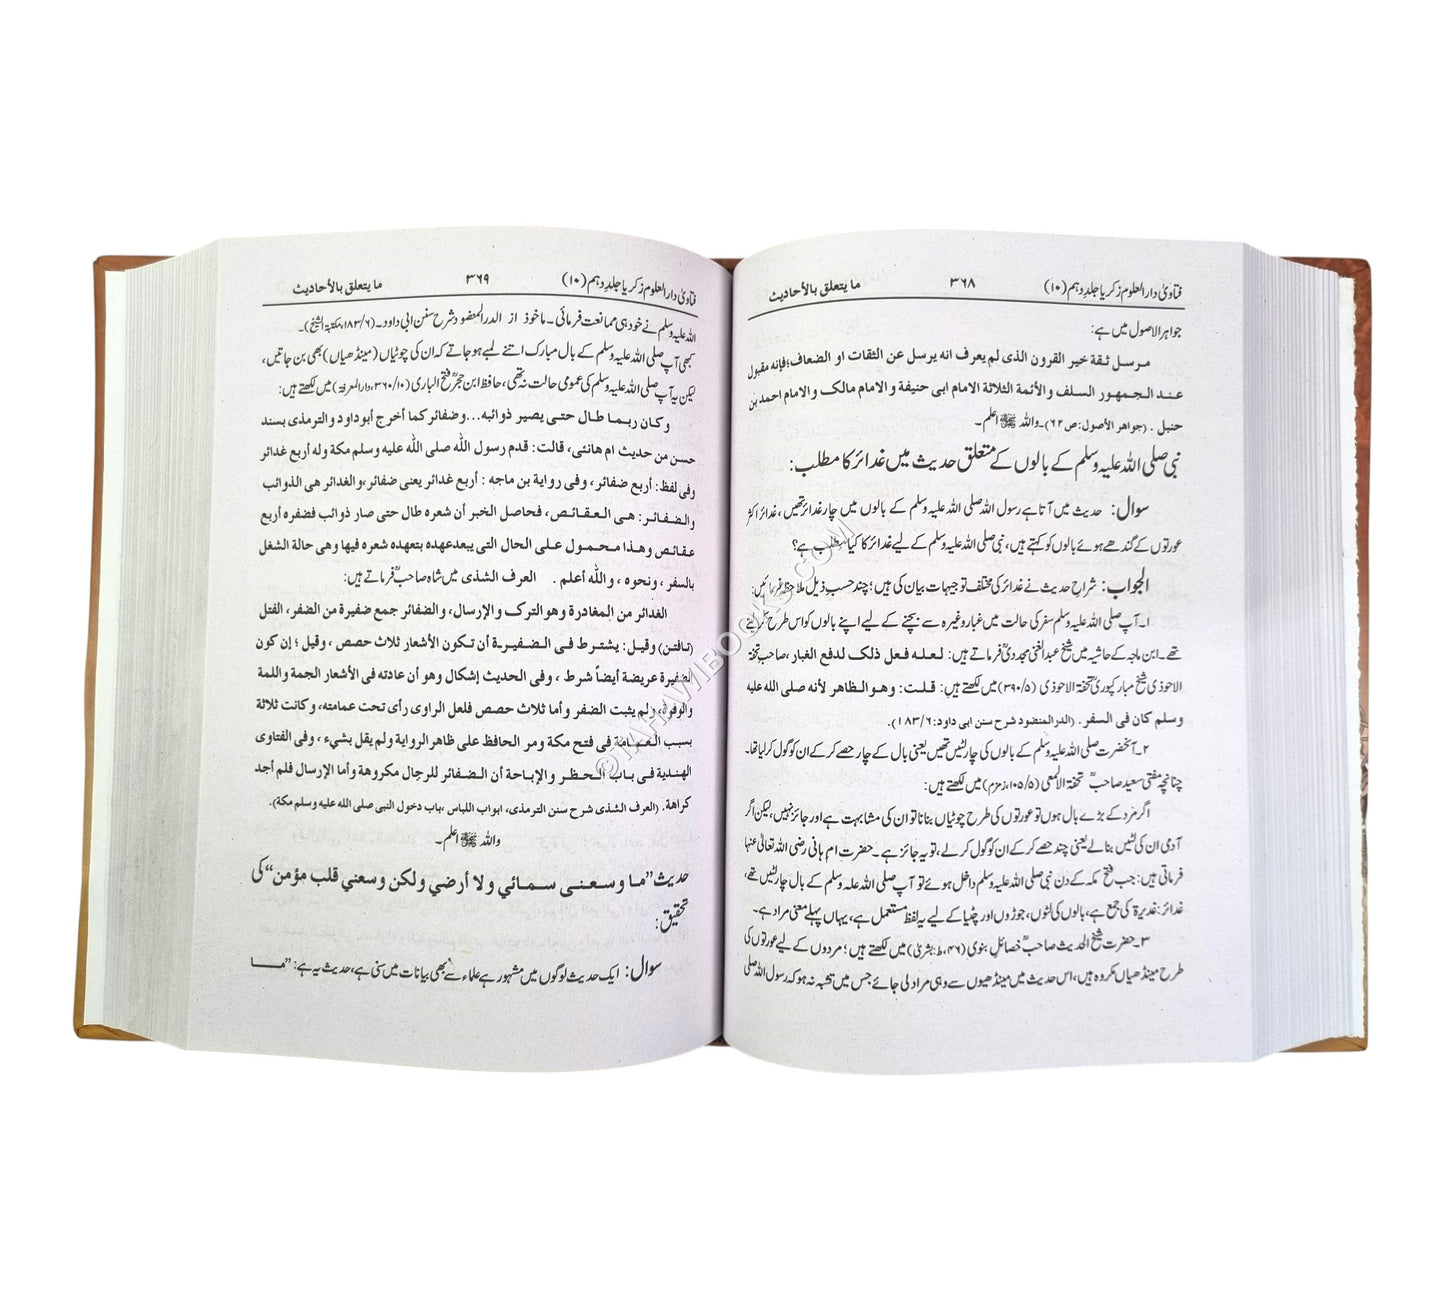 فتاویٰ دارالعلوم زکریا جلد دہم (۱۰) ۳۶۸ ما یتعلق بالأحادیث
جواہر الاصول میں ہے:
مرسل ثقة خیر القرون الذی لم یعرف انه یرسل عن الثقات او الضعاف؛ فإنه مقبول
عند الجمهور السلف والأئمة الثلاثة الامام ابی حنیفة والامام مالک والامام احمد بن
حنبل . (جواهر الأصول:ص ۶۲)۔ واللہ ﷻ اعلم۔
نبی صلی اللہ علیہ وسلم کے بالوں کے متعلق حدیث میں غدائر کا مطلب:
سوال: حدیث میں آتا ہے رسول اللہ صلی اللہ علیہ وسلم کے بالوں میں چار غدائر تھیں، غدائر اکثر
عورتوں کے گندھے ہوئے بالوں کو کہتے ہیں، نبی صلی اللہ علیہ وسلم کے لیے غدائر کا کیا مطلب ہے؟
الجواب: شراح حدیث نے غدائر کی مختلف توجیہات بیان کی ہیں؛ چند حسبِ ذیل ملاحظہ فرمائیں:
۱۔ آپ صلی اللہ علیہ وسلم سفر کی حالت میں غبار وغیرہ سے بچنے کے لیے اپنے بالوں کو اس طرح کر لیتے
تھے۔ ابن ماجہ کے حاشیہ میں شیخ عبدالغنی مجددیؒ فرماتے ہیں: لعله فعل ذلک لدفع الغبار، صاحب تحفۃ
الاحوذی شیخ مبارکپوریؒ تحفۃ الاحوذی (۵/۳۹۰) میں لکھتے ہیں: قلت: وهو الظاهر لأنه صلی الله علیه
وسلم کان فی السفر. (الدر المنضود شرح سنن ابی داود:۶/۱۸۳).
۲۔ آنحضرت صلی اللہ علیہ وسلم کے بالوں کی چار لٹیں تھیں یعنی بال کے چار حصے کرکے ان کو گول کر لیا تھا۔
چنانچہ مفتی سعید صاحبؒ تحفۃ الالمعی (۵/۱۰۵، زمزم) میں لکھتے ہیں:
اگر مرد کے بڑے بال ہوں تو عورتوں کی طرح چوٹیاں بنانا تو ان کی مشابہت ہے اور جائز نہیں، لیکن اگر
آدمی ان کی لٹیں بنالے یعنی چند حصے کرکے ان کو گول کر لے، تو یہ جائز ہے۔ حضرت ام ہانی رضی اللہ تعالیٰ عنہا
فرماتی ہیں: جب فتح مکہ کے دن نبی صلی اللہ علیہ وسلم داخل ہوئے تو آپ صلی اللہ علیہ وسلم کے بال چار لٹیں تھے،
غدائر: غدیرۃ کی جمع ہے، بالوں کی لٹوں، جوڑوں اور چٹیا کے لیے یہ لفظ مستعمل ہے، یہاں پہلے معنی مراد ہے۔
۳۔ حضرت شیخ الحدیث صاحبؒ خصائل نبوی (۴۶، ط: بشریٰ) میں لکھتے ہیں؛ مردوں کے لیے عورتوں کی
طرح مینڈھیاں مکروہ ہیں، اس حدیث میں مینڈھیوں سے وہی مراد لی جائے جس میں تشبہ نہ ہو کہ رسول اللہ صلی
فتاویٰ دارالعلوم زکریا جلد دہم (۱۰) ۳۶۹ ما یتعلق بالأحادیث
اللہ علیہ وسلم نے خود ہی ممانعت فرمائی۔ ماخوذ از الدر المنضود شرح سنن ابی داود۔ (۶/۱۸۳، مکتبۃ الشیخ)۔
کبھی آپ صلی اللہ علیہ وسلم کے بال مبارک اتنے لمبے ہو جاتے کہ ان کی چوٹیاں (مینڈھیاں) بھی بن جاتیں،
لیکن یہ آپ صلی اللہ علیہ وسلم کی عمومی حالت نہ تھی، حافظ ابن حجرؒ فتح الباری (۱۰/۳۶۰، دار المعرفۃ) میں لکھتے ہیں:
وکان ربما طال حتی یصیر ذوائبه...وضفائر کما أخرج أبوداود والترمذی بسند
حسن من حدیث ام هانئی، قالت: قدم رسول الله صلی الله علیه وسلم مکة وله أربع غدائر
وفی لفظ: أربع ضفائر، وفی روایة بن ماجه : أربع غدائر یعنی ضفائر، والغدائر هی الذوائب
والضفائر: هی العقائص، فحاصل الخبر أن شعره طال حتی صار ذوائب فضفره أربع
عقائص وهذا محمول علی الحال التی یبعدعهده بتعهده شعره فیها وهی حالة الشغل
بالسفر ، ونحوه ، والله أعلم . العرف الشذی میں شاہ صاحبؒ فرماتے ہیں:
الغدائر من المغادرة وهو الترک والإرسال، والضفائر جمع ضفیرة من الضفر، الفتل
(تافتن) وقیل: یشترط فی الضفیرة أن تکون الأشعار ثلاث حصص ، وقیل؛ إن کون
الضفیرة عریضة أیضاً شرط ، وفی الحدیث إشکال وهو أن عادته فی الأشعار الجمة واللمة
والوفرة، ولم یثبت الضفر وأما ثلاث حصص فلعل الراوی رأی تحت عمامته، وکانت ثلاثة
بسبب العمامة فی فتح مکة ومر الحافظ علی ظاهر الروایة ولم یقل بشیء ، وفی الفتاوی
الهندیة فی باب الحظر والإباحة أن الضفائر للرجال مکروهة وأما الإرسال فلم أجد
کراهة. (العرف الشذی شرح سنن الترمذی، ابواب اللباس ،باب دخول النبی صلی الله علیه وسلم مکة).
واللہ ﷻ اعلم۔
حدیث ”ما وسعنی سمائي ولا أرضي ولکن وسعني قلب مؤمن“ کی
تحقیق:
سوال: ایک حدیث لوگوں میں مشہور ہے علماء سے بھی بیانات میں سنی ہے، حدیث یہ ہے: ”ما
©TAHAWIBOOKS.COM